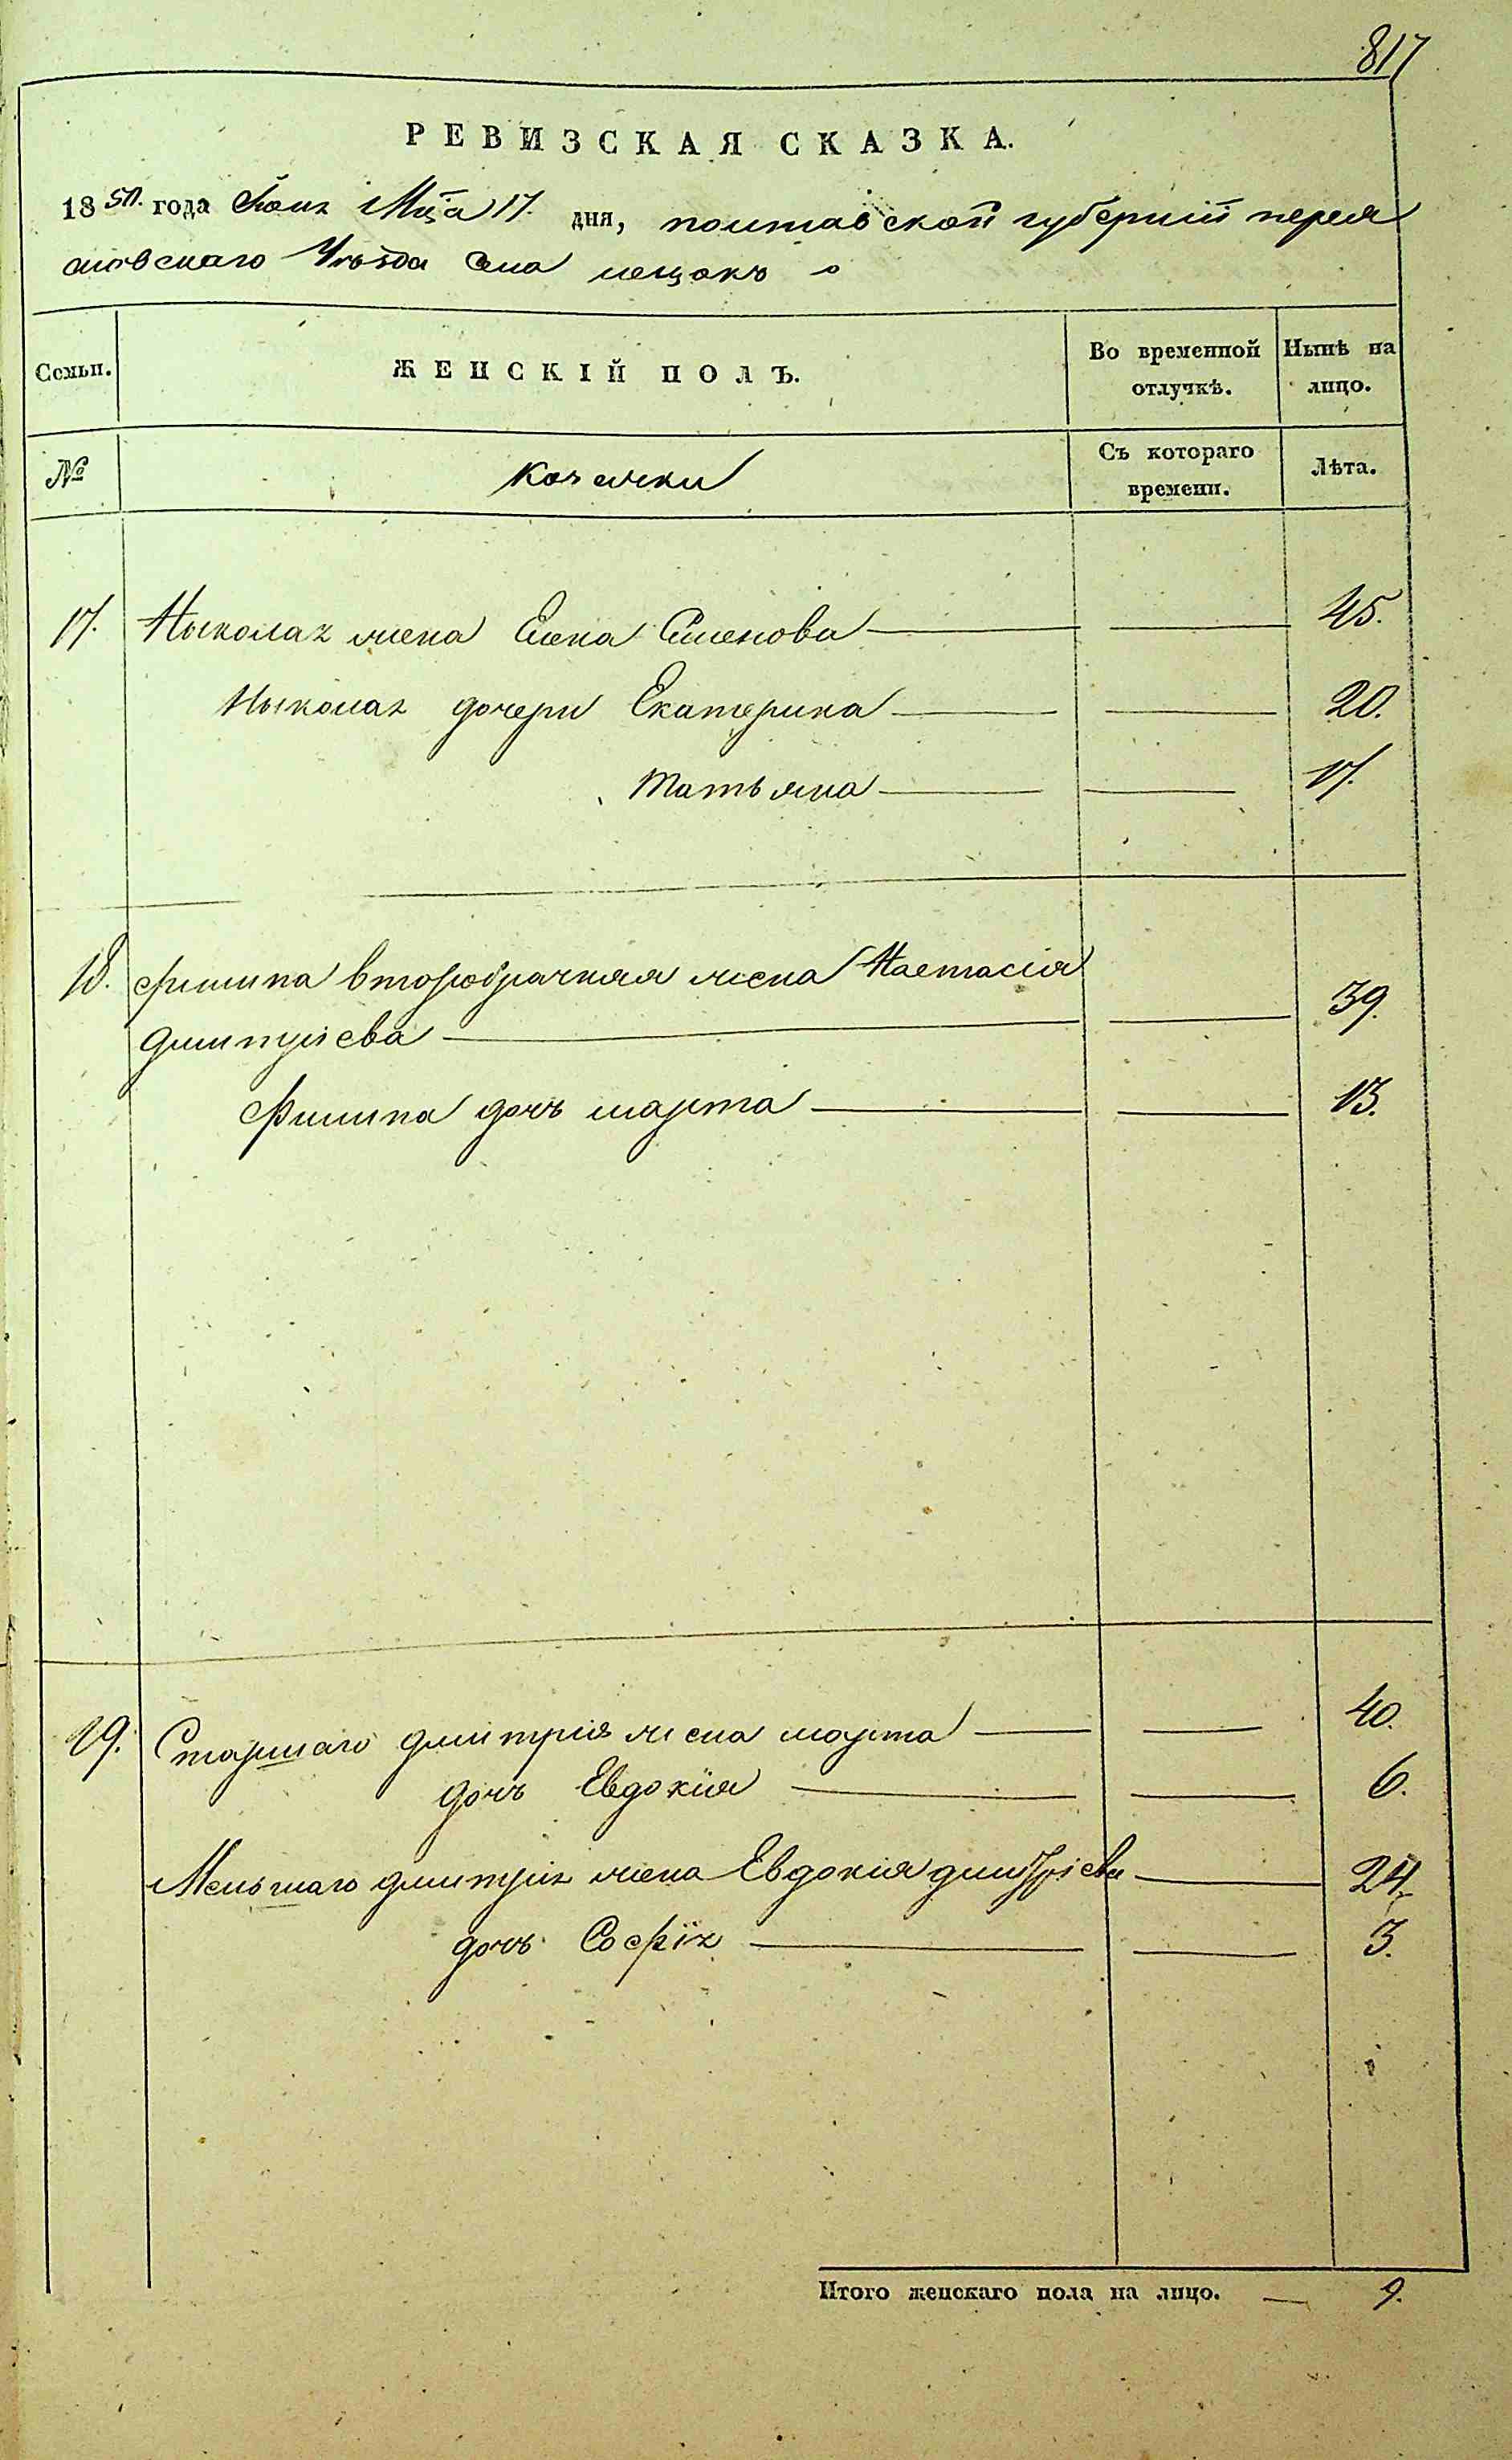 817
РЕВИЗСКАЯ СКАЗКА.
1850. года Мця 17. дня, полтавской губернїи перея
словскаго Уѣзда Села лецокъ
Семьи.
ЖЕНСКІЙ ПОЛЪ.
Во временной отлучкѣ.
Нынѣ на лицо.
№
Козачки
Съ котораго времени.
Лѣта.
17. Ныколая жена Елена Семенова 45.
Ныколая дочери Екатерина 20.
Татьяна 17.
18. Филипа второбрачная жена Настасія
Дмитріева 39.
Филипа дочь марта 13.
19. Старшаго дмитрія жена марта 40.
дочь Евдокїя 6.
Меньшаго дмитрія жена Евдокія дмитріева 24.
дочь Софїя 3.
Итого женскаго пола на лицо. 9.